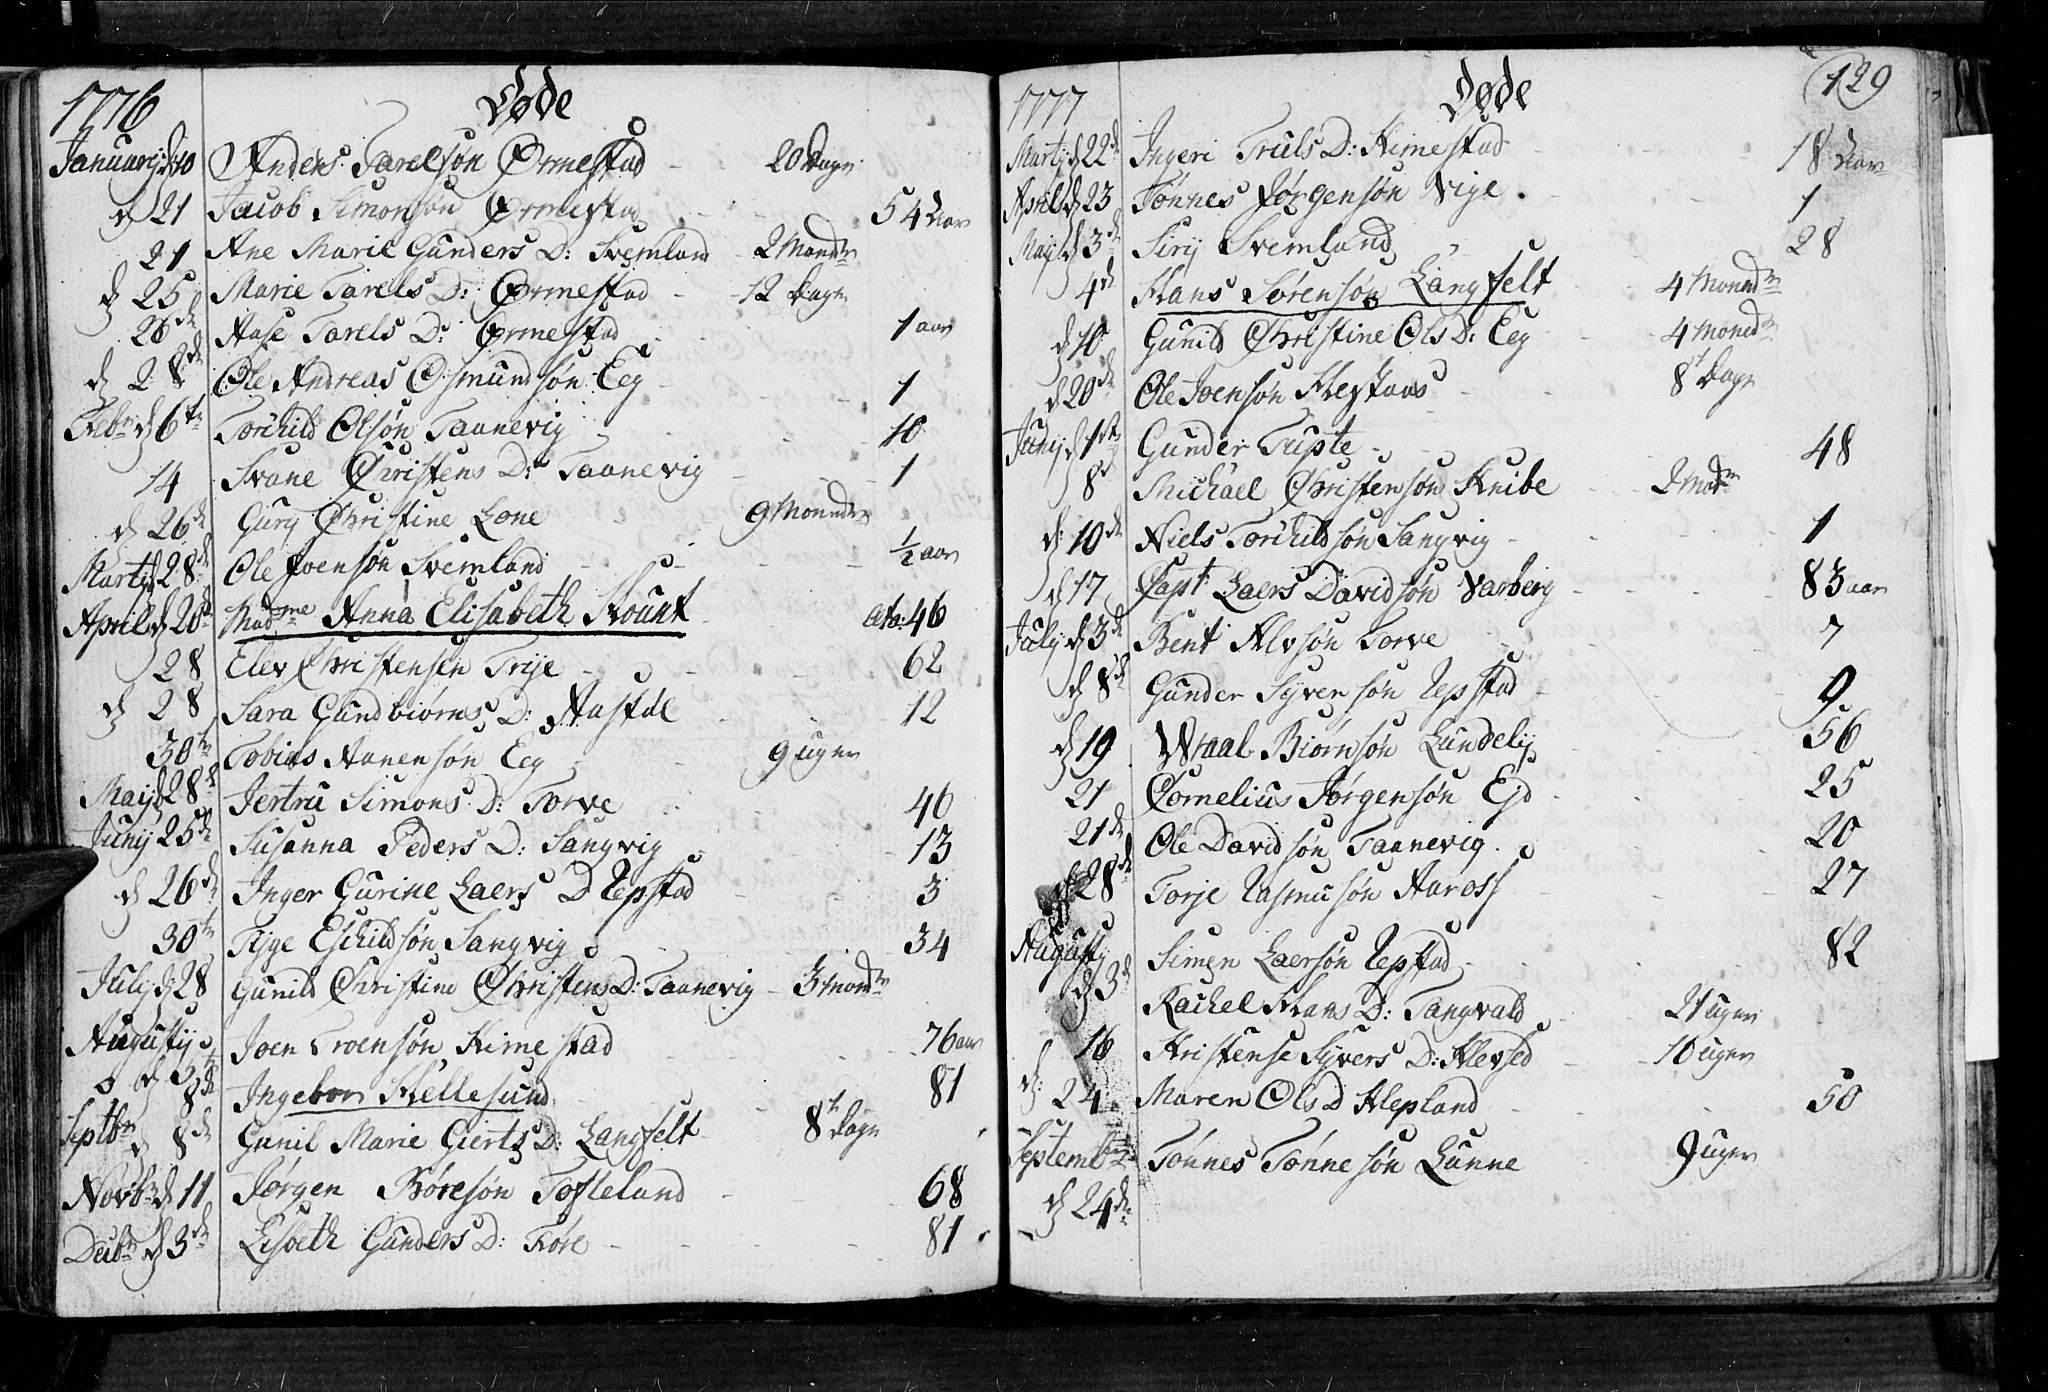 1776 Døde
Januarij d 10 Anders Tarelsøn Ørmestad 20 Dage
d 21 Jacob Simonsøn Ørmestad 54 Aar
21 Ane Marie Gunders D: Svemland 2 Maandr
d 25 Marie Tarels D: Ørmestad 12 Dage
26de Aase Tarels D: Ørmestad 1 aar
d 28de Ole Andreas Osmundsøn Eeg 1
Febr d 6te Torchild Olsøn Taanevig 10
14 Svane Christens D: Taanevig 1
d 26de Gury Christine Lone 9 Maander
Martij d 28de Ole Joensøn Svemland 1/2 aar
April d 20de Madme Anna Elisabeth Kount æta: 46
28 Elev Christensen Trije 62
d 28 Sara Gundbiørns D: Aasfdl 12
30te Tobias Aanensøn Eeg 9 uger
Maij d 28de Jertru Simons D: Torve 46
Junij 25de Susanna Peders D: Sangvig 13
d 26de Inger Gurine Laers D Repstad 3
30te Tijge Eschildsøn Sangvig 34
Julij d 28 Gunild Christine Christens D: Taanevig 3 mondr
Augustij Joen Troensøn Kimestad 76 aar
d 8de Ingebor Hellesund 81
Septbr d 8de Gunil Marie Gierts D: Langfelt 8te Dage
Novbr d 11 Jørgen Børesøn Tofteland 68
Decbr d 3de Lisbeth Gunders D: Føre 81
1777 Døde 129
Martij d 22de Ingeri Truls D: Kimestad 18 Aar
April d 23 Tønnes Jørgensøn Vige 1
Maij d 3de Sirij Svemland 28
4de Hans Sørensøn Langfelt 4 Monndr
d 10 Gunild Christine Ols D: Eeg 4 Moned
d 20de Ole Joensøn Kleptaas 8te Dage
Junij d 1ste Gunder Tupte 48
8de Michael Christensøn Knibe 2 Mdr
d: 10de Niels Torchildsøn Sangvig 1
d 17 Capt Laers Davidsøn Varberg 83 aar
Julij d 3de Bent Alvsøn Torve 7
d 8de Gunder Syvensøn Repstad 9
d 19 Wraal Biørnsøn Lundelij 56
21 Cornelius Jørgensøn Ejd 25
21de Ole Davidsøn Taanevig 20
28de Torje Rasmusøn Aaross 27
Augustij d 3de Simen Laersøn Repstad 82
Rachel Hans D: Tangvald 21 uger
16 Kristense Syvers D: Klevsed 16 uger
d: 24 Maren Ols D Klepland 50
Septembr Tønnes Tønnesøn Lunne 9 uger
d 24de